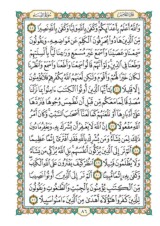 وَٱللَّهُ أَعْلَمُ بِأَعْدَآئِكُمْ وَكَفَىٰ بِٱللَّهِ وَلِيًّا وَكَفَىٰ بِٱللَّهِ نَصِيرًا
مِّنَ ٱلَّذِينَ هَادُوا۟ يُحَرِّفُونَ ٱلْكَلِمَ عَن مَّوَاضِعِهِۦ وَيَقُولُونَ
سَمِعْنَا وَعَصَيْنَا وَٱسْمَعْ غَيْرَ مُسْمَعٍ وَرَٰعِنَا لَيًّۢا بِأَلْسِنَتِهِمْ
وَطَعْنًا فِى ٱلدِّينِ وَلَوْ أَنَّهُمْ قَالُوا۟ سَمِعْنَا وَأَطَعْنَا وَٱسْمَعْ وَٱنظُرْنَا
لَكَانَ خَيْرًا لَّهُمْ وَأَقْوَمَ وَلَٰكِن لَّعَنَهُمُ ٱللَّهُ بِكُفْرِهِمْ فَلَا يُؤْمِنُونَ
إِلَّا قَلِيلًا يَٰٓأَيُّهَا ٱلَّذِينَ أُوتُوا۟ ٱلْكِتَٰبَ ءَامِنُوا۟ بِمَا نَزَّلْنَا
مُصَدِّقًا لِّمَا مَعَكُم مِّن قَبْلِ أَن نَّطْمِسَ وُجُوهًا فَنَرُدَّهَا
عَلَىٰٓ أَدْبَارِهَآ أَوْ نَلْعَنَهُمْ كَمَا لَعَنَّآ أَصْحَٰبَ ٱلسَّبْتِ وَكَانَ أَمْرُ
ٱللَّهِ مَفْعُولًا إِنَّ ٱللَّهَ لَا يَغْفِرُ أَن يُشْرَكَ بِهِۦ وَيَغْفِرُ مَا دُونَ
ذَٰلِكَ لِمَن يَشَآءُ وَمَن يُشْرِكْ بِٱللَّهِ فَقَدِ ٱفْتَرَىٰٓ إِثْمًا
عَظِيمًا أَلَمْ تَرَ إِلَى ٱلَّذِينَ يُزَكُّونَ أَنفُسَهُم بَلِ ٱللَّهُ يُزَكِّى مَن يَشَآءُ
وَلَا يُظْلَمُونَ فَتِيلًا ٱنظُرْ كَيْفَ يَفْتَرُونَ عَلَى ٱللَّهِ ٱلْكَذِبَ
وَكَفَىٰ بِهِۦٓ إِثْمًا مُّبِينًا أَلَمْ تَرَ إِلَى ٱلَّذِينَ أُوتُوا۟ نَصِيبًا
مِّنَ ٱلْكِتَٰبِ يُؤْمِنُونَ بِٱلْجِبْتِ وَٱلطَّٰغُوتِ وَيَقُولُونَ
لِلَّذِينَ كَفَرُوا۟ هَٰٓؤُلَآءِ أَهْدَىٰ مِنَ ٱلَّذِينَ ءَامَنُوا۟ سَبِيلًا
٨٦